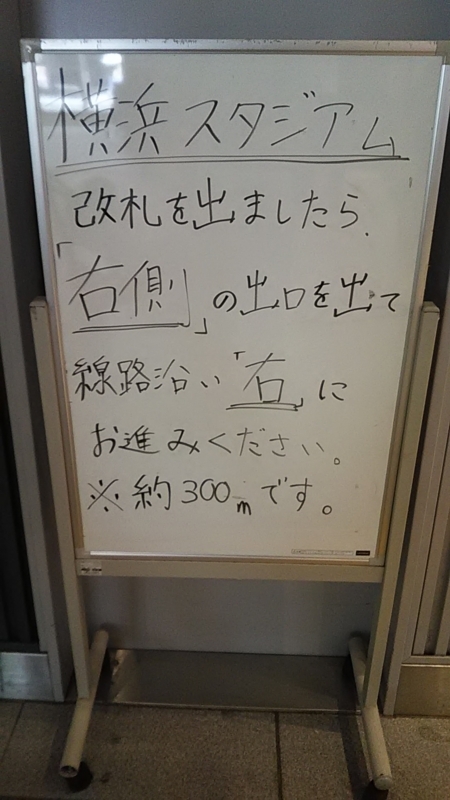 横浜スタジアム
改札を出ましたら、
「右側」の出口を出て
線路沿い「右」に
お進みください。
※約300mです。